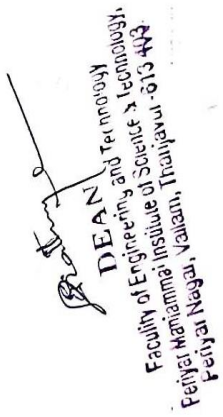 DEAN
Faculty of Engineering and Technology
Periyar Maniammai Institute of Science & Technology,
Periyar Nagar, Vallam, Thanjavur - 613 403.